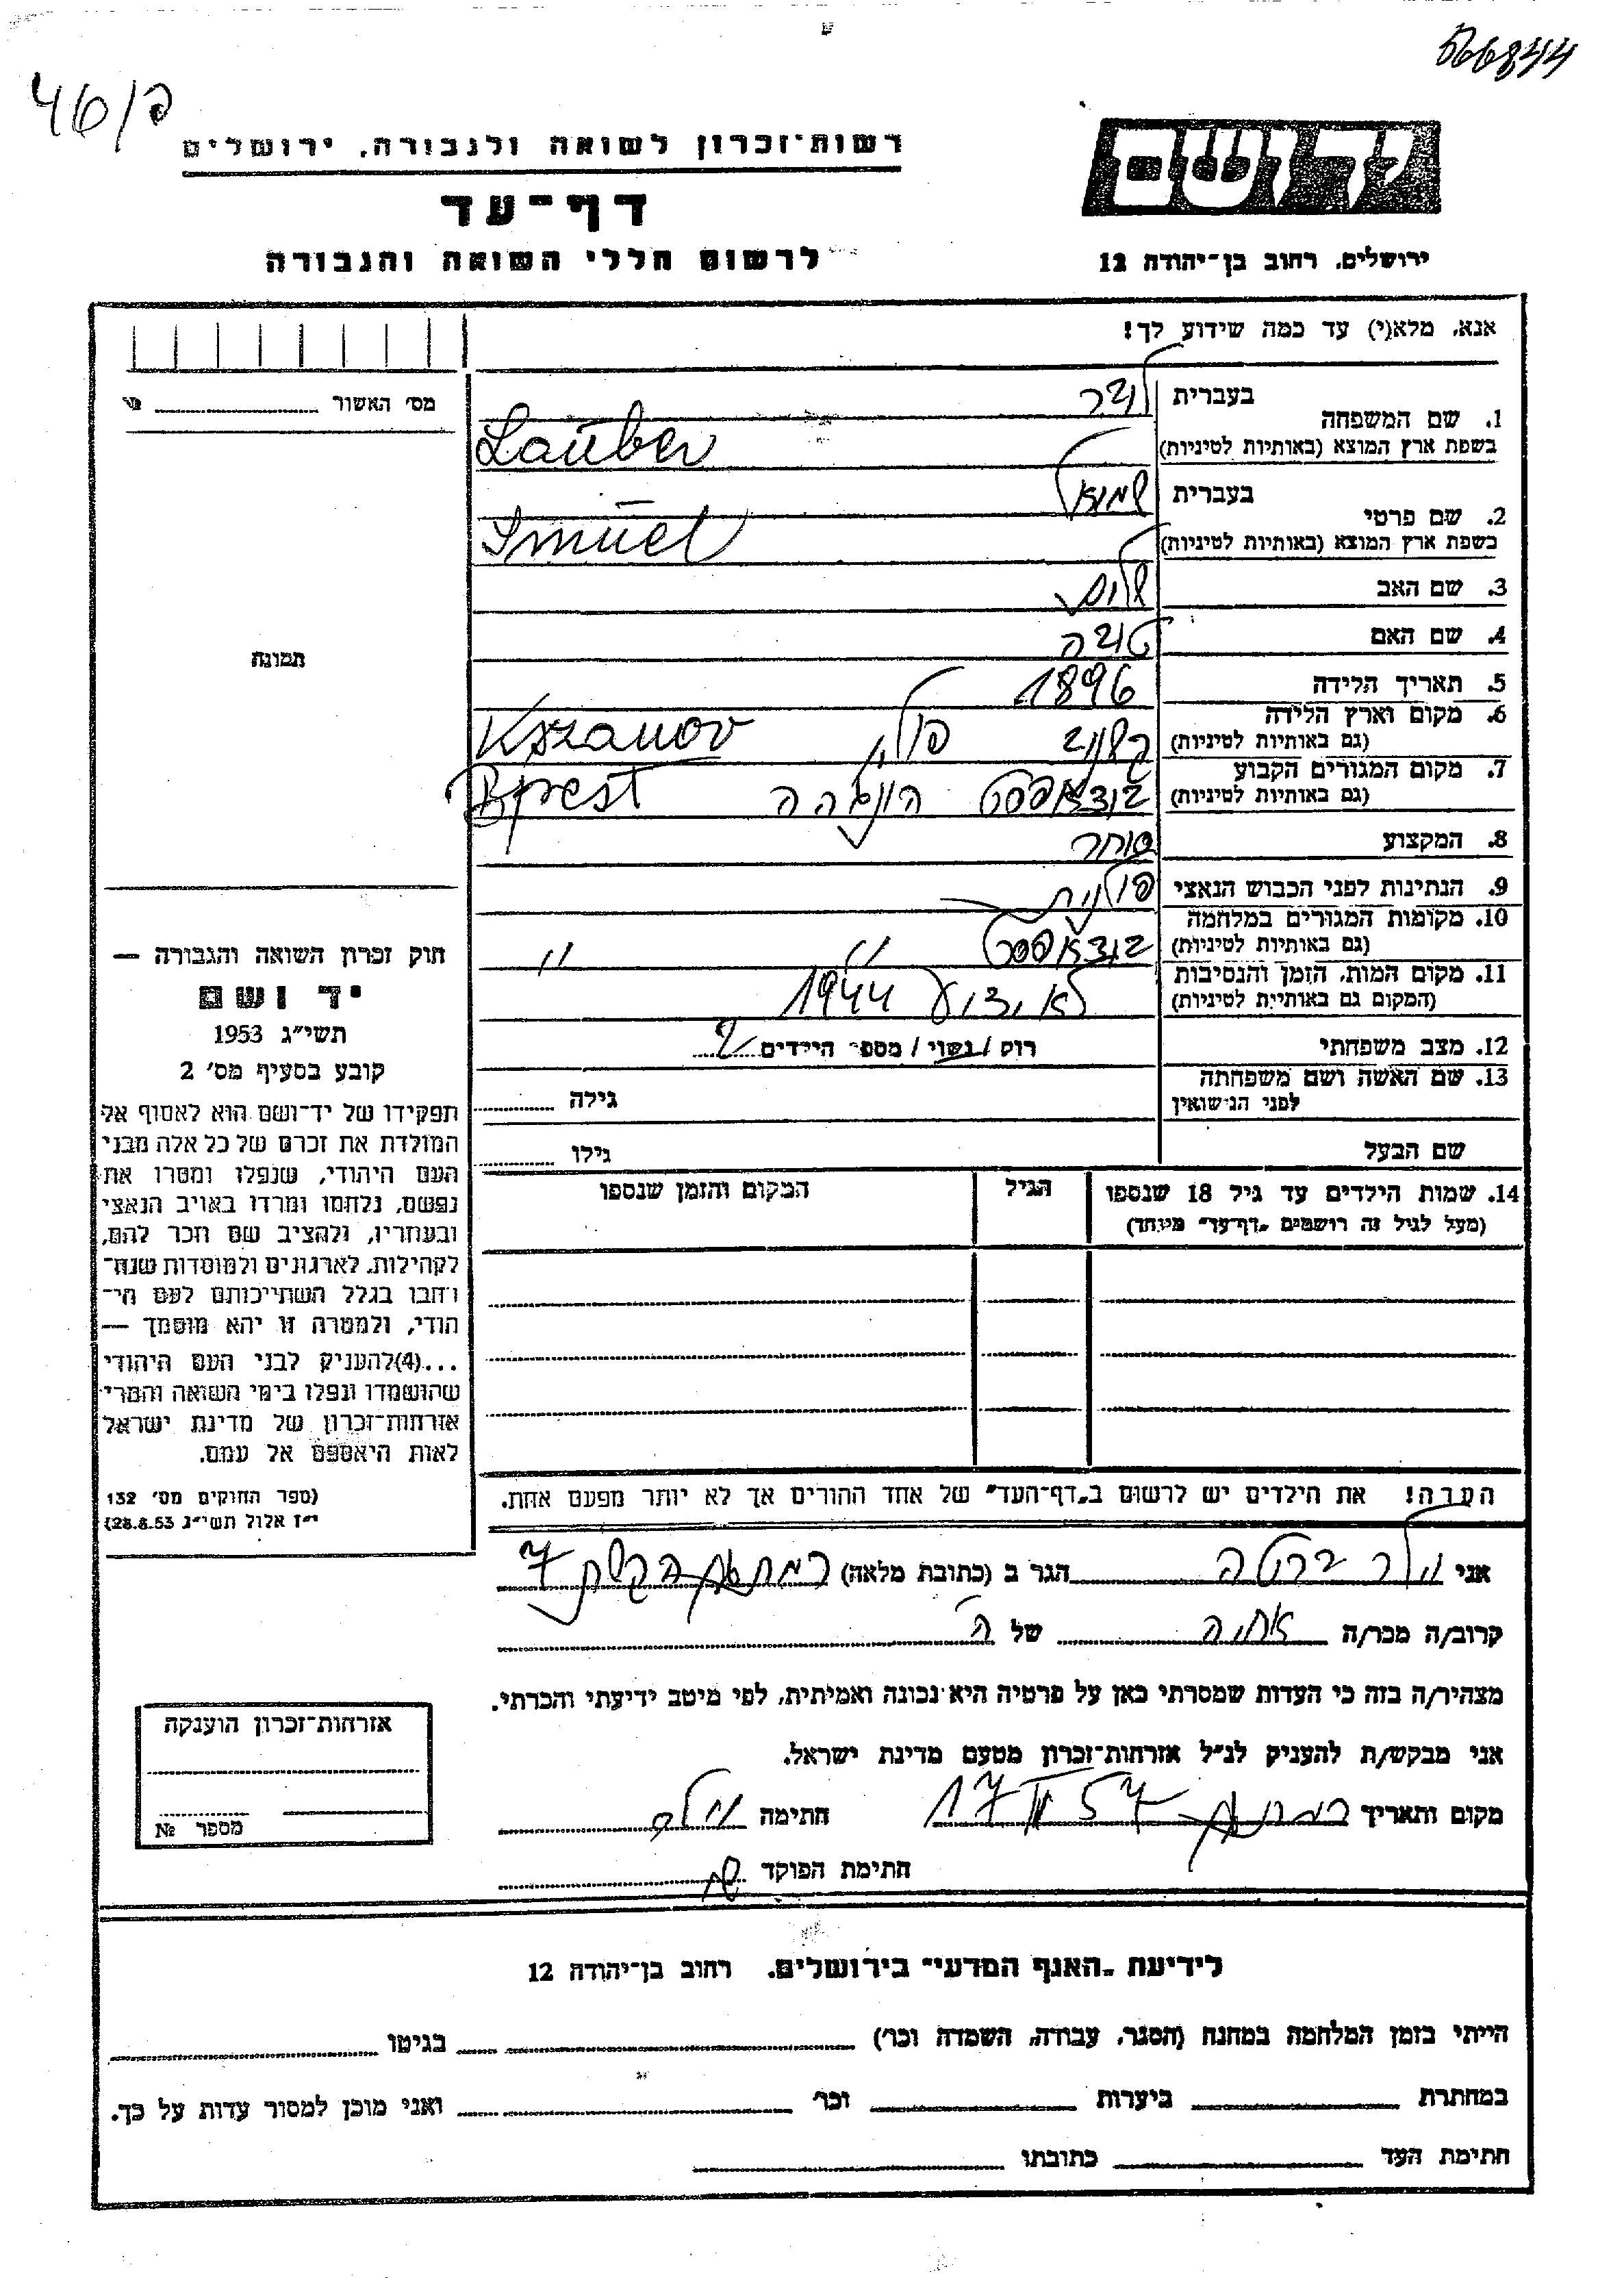 566844
46/פ
רשות־זכרון לשואה ולגבורה, ירושלים
דף־עד
לרשום חללי השואה והגבורה
יד ושם
ירושלים, רחוב בן־יהודה 12
אנא, מלא(י) עד כמה שידוע לך!
מס' האשור №
תמונה
1. שם המשפחה בעברית לובר
בשפת ארץ המוצא (באותיות לטיניות) Lauber
2. שם פרטי בעברית שמואל
בשפת ארץ המוצא (באותיות לטיניות) Smuel
3. שם האב שלום
4. שם האם טובה
5. תאריך הלידה 1896
6. מקום וארץ הלידה
(גם באותיות לטיניות) קשנוב פולין Kszanov
7. מקום המגורים הקבוע
(גם באותיות לטיניות) בודאפסט הונגריה Bpest
8. המקצוע סוחר
9. הנתינות לפני הכבוש הנאצי פולנית
10. מקומות המגורים במלחמה
(גם באותיות לטיניות) בודאפסט " "
11. מקום המות, הזמן והנסיבות
(המקום גם באותיות לטיניות) לא ידוע 1944
12. מצב משפחתי רוק / נשוי / מספר הילדים 2
13. שם האשה ושם משפחתה
לפני הנישואין גילה
שם הבעל גילו
14. שמות הילדים עד גיל 18 שנספו הגיל המקום והזמן שנספו
(מעל לגיל זה רושמים „דף־עד" מיוחד)
הערה! את הילדים יש לרשום ב„דף־העד" של אחד ההורים אך לא יותר מפעם אחת.
חוק זכרון השואה והגבורה —
יד ושם
תשי"ג 1953
קובע בסעיף מס' 2
תפקידו של יד־ושם הוא לאסוף אל
המולדת את זכרם של כל אלה מבני
העם היהודי, שנפלו ומסרו את
נפשם, נלחמו ומרדו באויב הנאצי
ובעוזריו, ולהציב שם וזכר להם,
לקהילות, לארגונים ולמוסדות שנח־
רבו בגלל השתייכותם לעם הי־
הודי, ולמטרה זו יהא מוסמך —
...(4) להעניק לבני העם היהודי
שהושמדו ונפלו בימי השואה והמרי
אזרחות־זכרון של מדינת ישראל
לאות היאספם אל עמם.
(ספר החוקים מס' 132
י"ז אלול תשי"ג 28.8.53)
אני ברטה הגר ב (כתובת מלאה) 7
קרוב/ה מכר/ה אחיה של ה
מצהיר/ה בזה כי העדות שמסרתי כאן על פרטיה היא נכונה ואמיתית, לפי מיטב ידיעתי והכרתי.
אני מבקש/ת להעניק לנ"ל אזרחות־זכרון מטעם מדינת ישראל.
מקום ותאריך 17 II 57 חתימה
חתימת הפוקד
אזרחות־זכרון הוענקה
מספר №
לידיעת „האגף המדעי" בירושלים, רחוב בן־יהודה 12
הייתי בזמן המלחמה במחנה (הסגר, עבודה, השמדה וכו') בגיטו
במחתרת ביערות וכו' ואני מוכן למסור עדות על כך.
חתימת העד כתובתו